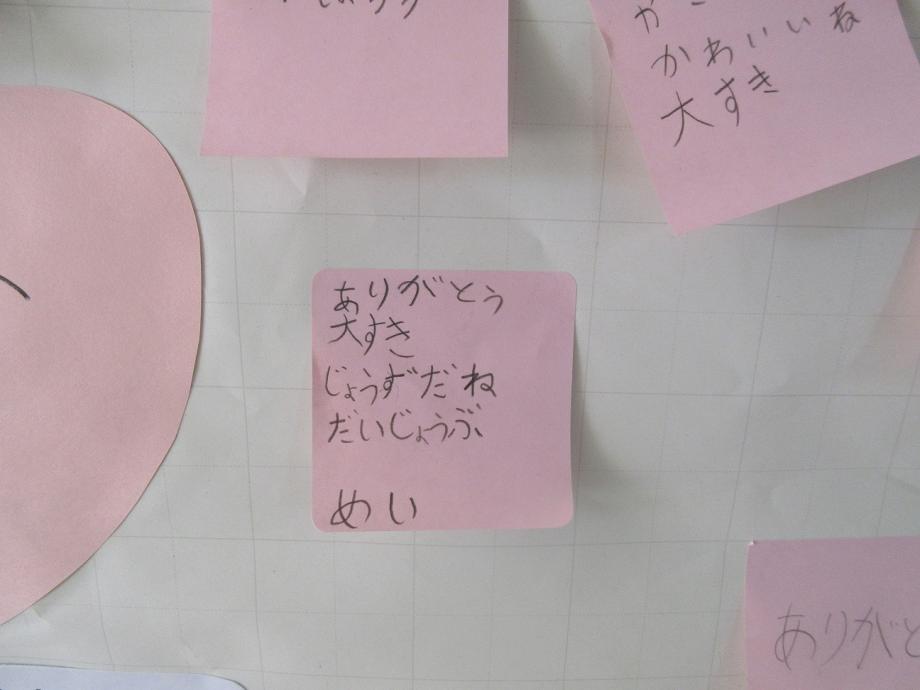 かわいいね
大すき
ありがとう
大すき
じょうずだね
だいじょうぶ
めい
ありがと